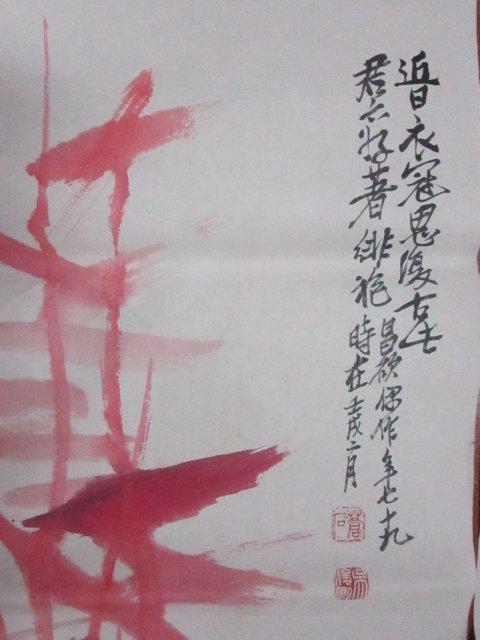 近日衣冠思復古此
君亦好著緋袍
昌碩偶作年七十九
時在壬戌二月
蒼石